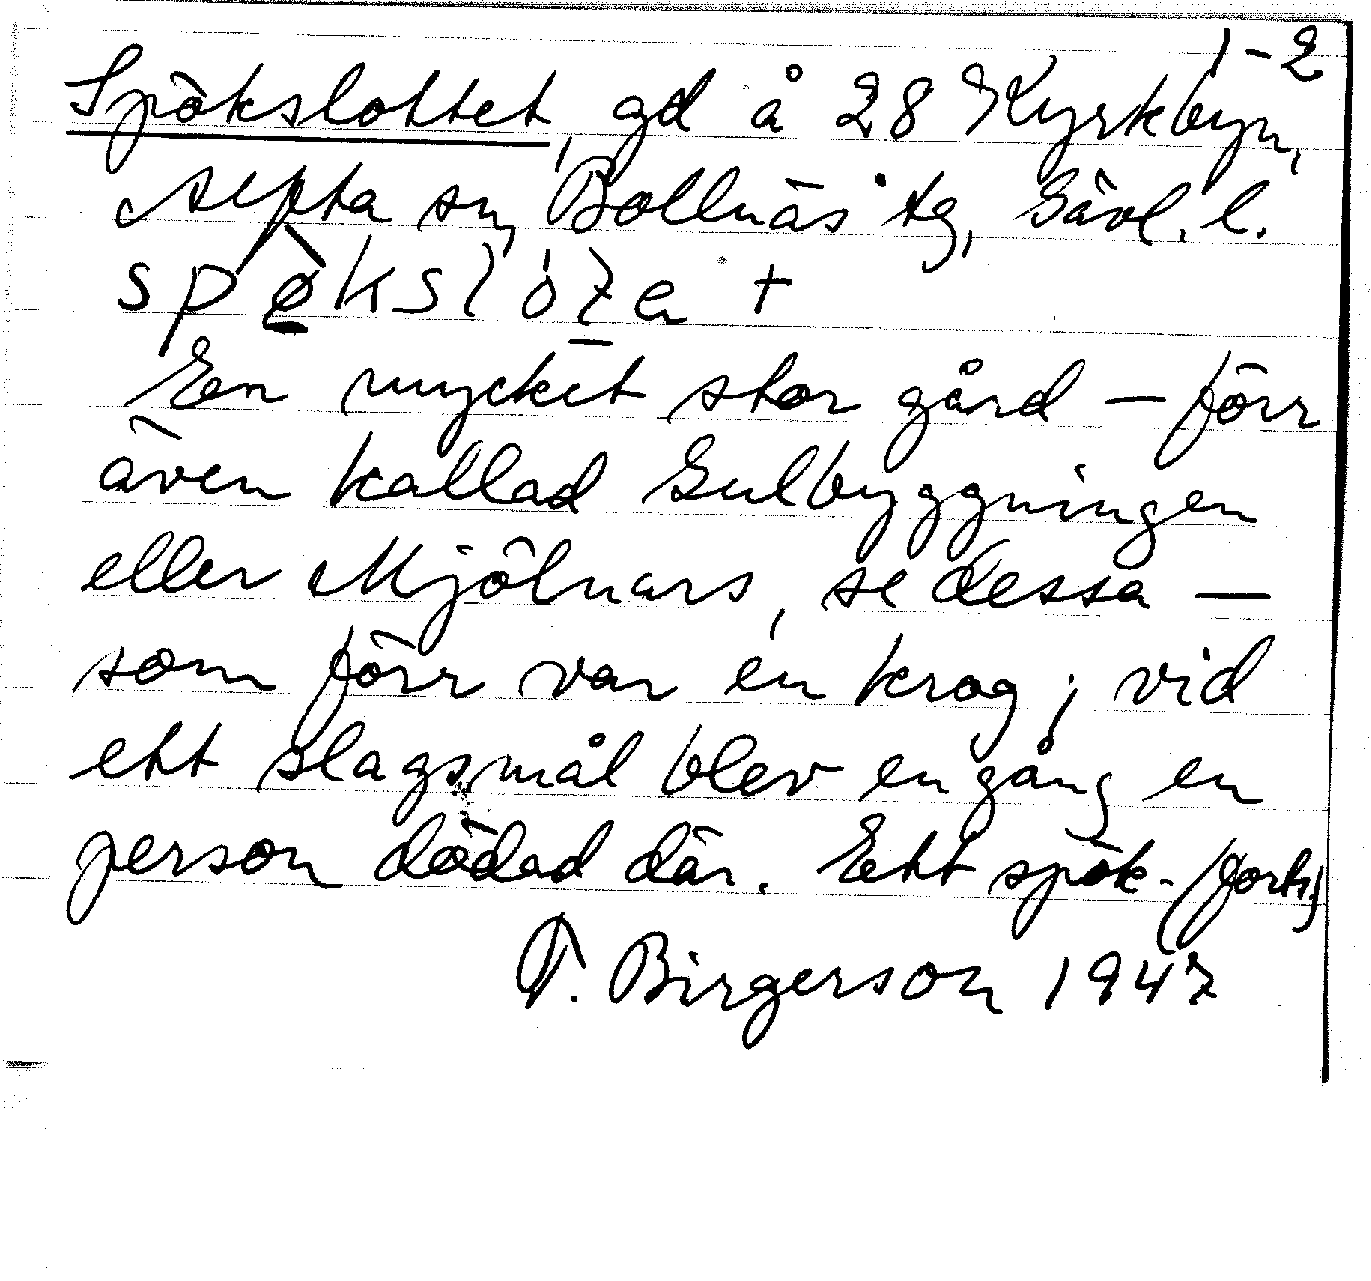 1-2
Spökslottet, gd å 28 Kyrkbyn,
Alfta sn, Bollnäs tg, Gävl. l.
En mycket stor gård — förr
även kallad Gulbyggningen
eller Mjölnars, se dessa —
som förr var en krog; vid
ett slagsmål blev en gång en
person dödad där. Ett spök- (forts.)
T. Birgerson 1947